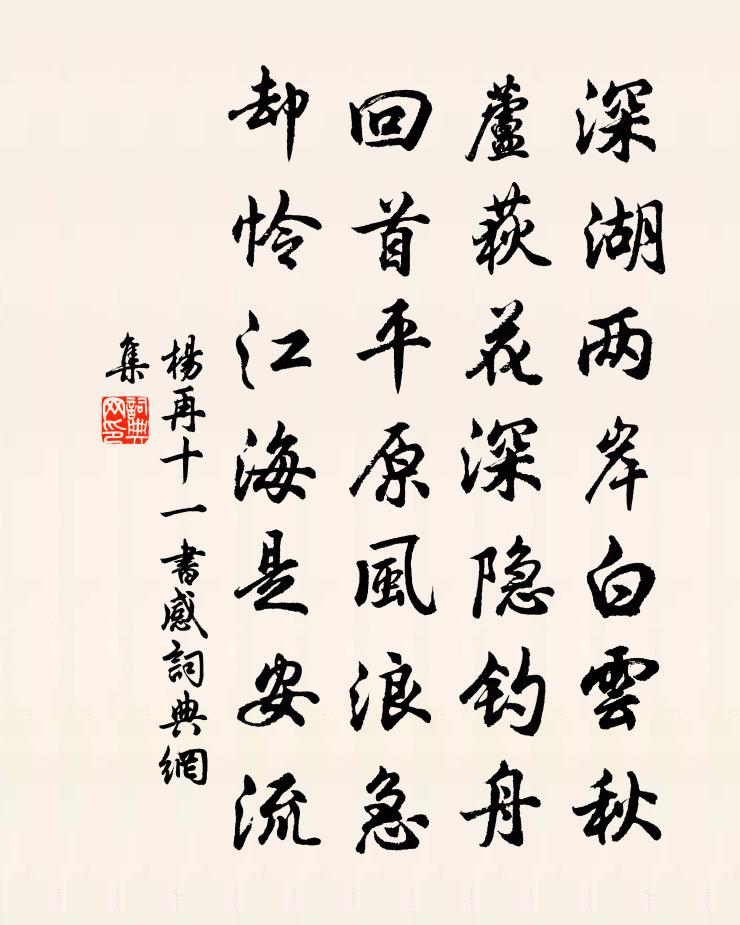 深湖两岸白雲秋
蘆荻花深隐钓舟
回首平原風浪急
却怜江海是安流
楊再十一書感詞典網
集
詞典
网印